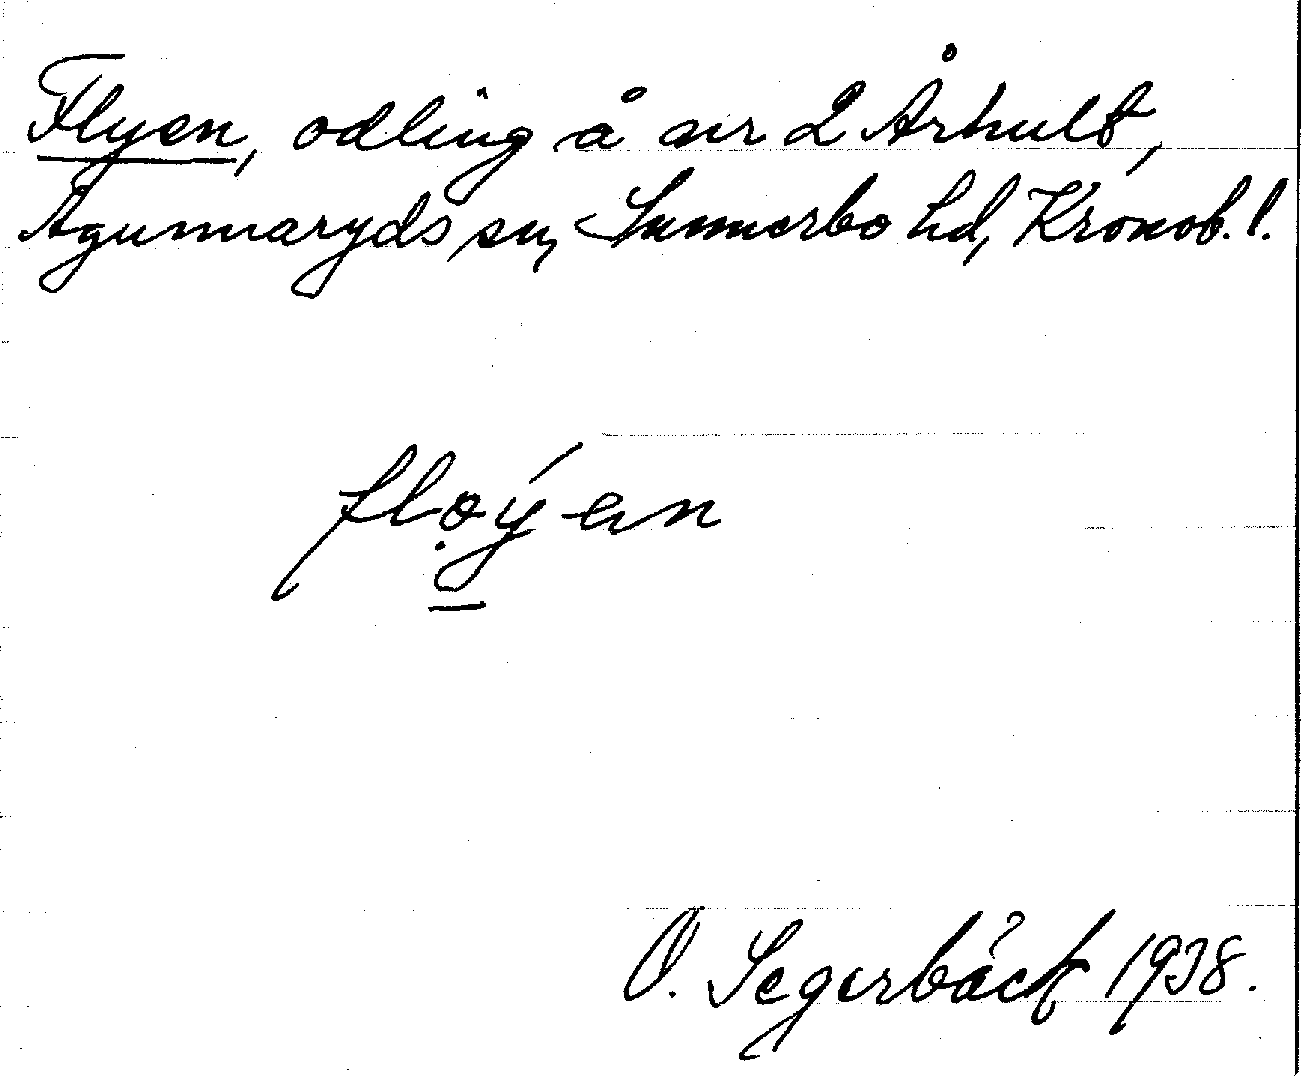 Flyen, odling å nr 2 Århult,
Agunnaryds sn, Sunnerbo hd, Kronob. l.
flo̤ýen
O. Segerbäck 1938.